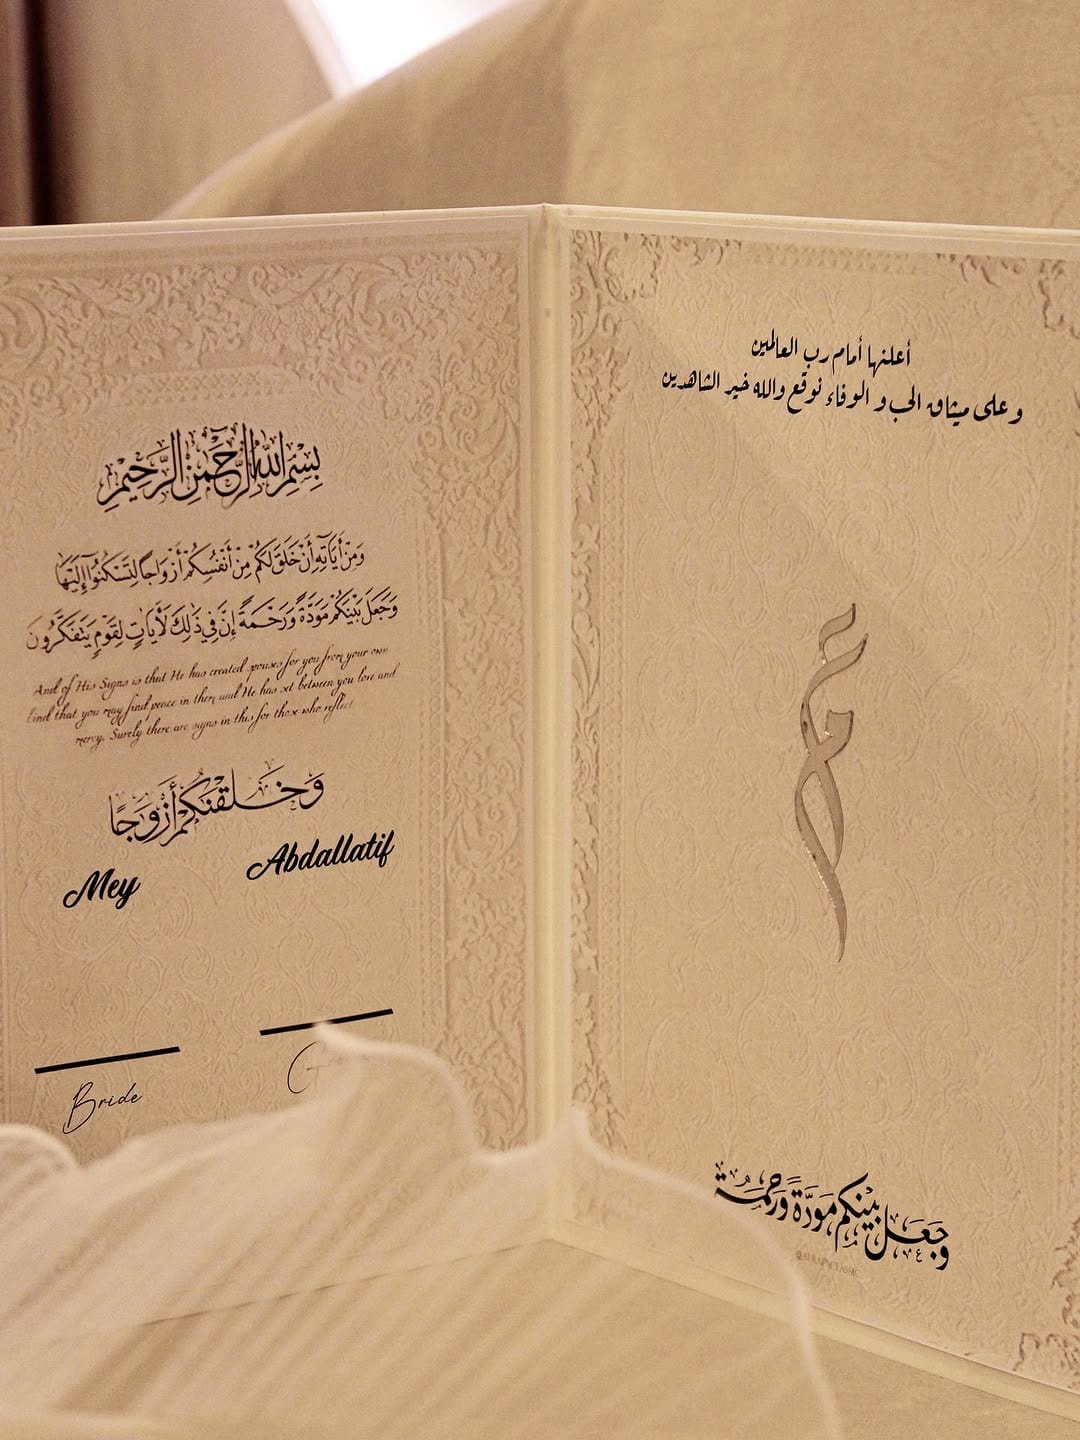 بِسْمِ اللهِ الرَّحْمٰنِ الرَّحِيْمِ
وَمِنْ أٰيَاتِهِ أَنْ خَلَقَ لَكُمْ مِنْ أَنْفُسِكُمْ أَزْوَاجًا لِتَسْكُنُوا إِلَيْهَا
وَجَعَلَ بَيْنَكُمْ مَوَدَّةً وَرَحْمَةً إِنَّ فِي ذَلِكَ لَأٰيَاتٍ لِقَوْمٍ يَتَفَكَّرُونَ
And of His Signs is that He has created spouses for you from your own
kind that you may find peace in them and He has set between you love and
mercy. Surely there are signs in this for those who reflect
وَخَلَقْنَٰكُمْ أَزْوَٰجًا
Mey Abdallatif
Bride
أعلنها أمام رب العالمين
وعلى ميثاق الحب و الوفاء نوقع والله خير الشاهدين
وَجَعَلَ بَيْنَكُم مَوَدَّةً وَرَحْمَةً